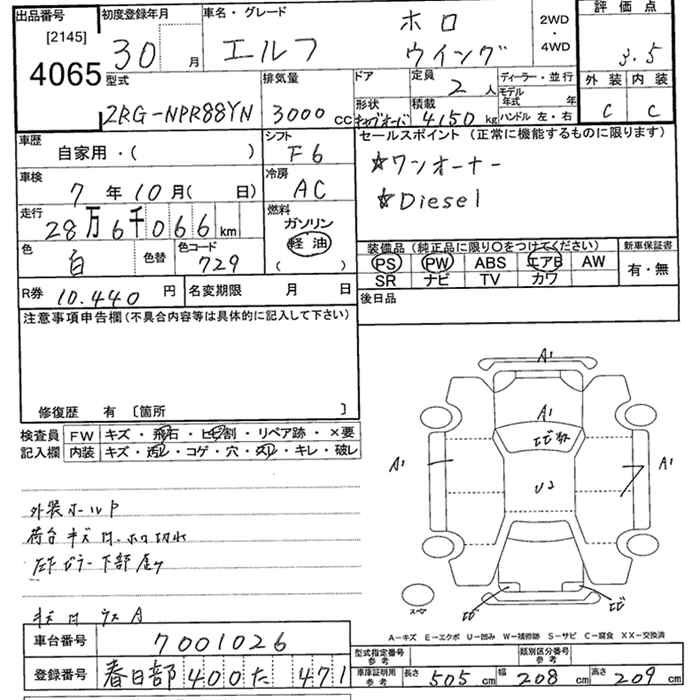 出品番号
[2145]
4065
初度登録年月
30 月
車名・グレード
エルフ
ホロ
ウイング
2WD
・
4WD
評価点
3.5
外装 内装
C C
型式
2RG-NPR88YN
排気量
3000 cc
ドア
形状
定員
2 人
積載
4150 kg
ディーラー・並行
モデル
年式 年
ハンドル 左・右
車歴
自家用・( )
シフト
F6
車検
7 年 10 月( 日)
冷房
AC
走行
28 万 6 千 0 6 6 km
燃料
ガソリン
軽油
( )
色
白
色替
色コード
729
R券 10.440 円
名変期限 月 日
セールスポイント (正常に機能するものに限ります)
☆ワンオーナー
☆Diesel
装備品 (純正品に限り○をつけてください)
PS PW ABS エアB AW
SR ナビ TV カワ
新車保証書
有・無
後日品
注意事項申告欄(不具合内容等は具体的に記入して下さい)
修復歴 有 〔箇所 〕
検査員
記入欄
FW キズ・飛石・ヒビ割・リペア跡・×要
内装 キズ・汚レ・コゲ・穴・スレ・キレ・破レ
外装ホールP
荷台キズ
下部
A1
A1
A1
A1
U2
ヒビ
ヒビ
スペア
A-キズ E-エクボ U-凹み W-補修跡 S-サビ C-腐食 XX-交換済
車台番号 7001026
登録番号 春日部 400 た 471
型式指定番号
参考
類別区分番号
参考
車庫証明用
参考
長さ 505 cm 幅 208 cm 高さ 209 cm